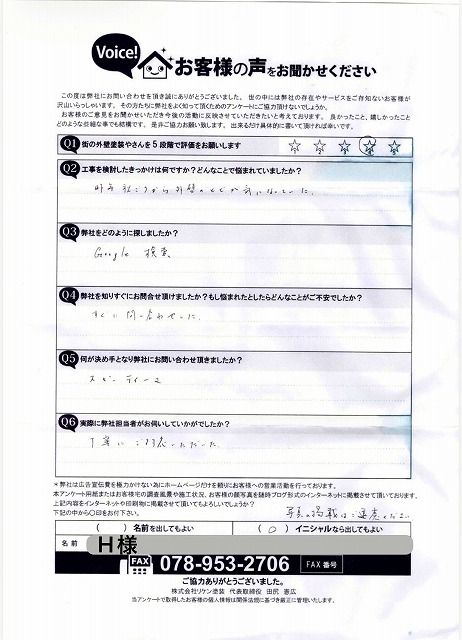 Voice!
お客様の声をお聞かせください
この度は弊社にお問い合わせを頂き誠にありがとうございました。世の中には弊社の存在やサービスをご存知ないお客様が
沢山いらっしゃいます。その方たちに弊社をよく知って頂くためのアンケートにご協力頂けないでしょうか。
お客様のご意見をお聞かせいただき今後の活動に反映させていただきたいと考えております。良かったこと、嬉しかったこと
どのような些細な事でも結構です。是非ご協力お願い致します。出来るだけ具体的に書いて頂ければ幸いです。
Q1 街の外壁塗装やさんを5段階で評価をお願いします
Q2 工事を検討したきっかけは何ですか？どんなことで悩まれていましたか？
昨年秋ごろから外壁のことが気になっていた。
Q3 弊社をどのように探しましたか？
Google 検索
Q4 弊社を知りすぐにお問合せ頂けましたか？もし悩まれたとしたらどんなことがご不安でしたか？
すぐに問い合わせした。
Q5 何が決め手となり弊社にお問い合わせ頂きましたか？
スピーディーさ
Q6 実際に弊社担当者がお伺いしていかがでしたか？
丁寧にご対応いただいた
＊弊社は広告宣伝費を極力かけない為にホームページだけを頼りにお客様への営業活動を行っております。
本アンケート用紙またはお客様宅の調査風景や施工状況、お客様の顔写真を随時ブログ形式のインターネットに掲載させて頂いております。
上記内容をインターネットや印刷物に掲載させて頂いてもよろしいでしょうか？
下記の中から○印をお付下さい。
写真の掲載はご遠慮ください
（ ）名前を出してもよい （ ○ ）イニシャルなら出してもよい
名前 H様
FAX 078-953-2706 FAX番号
ご協力ありがとうございました。
株式会社リケン塗装 代表取締役 田尻 憲広
当アンケートで取得したお客様の個人情報は関係法規に基づき厳正に管理いたします。